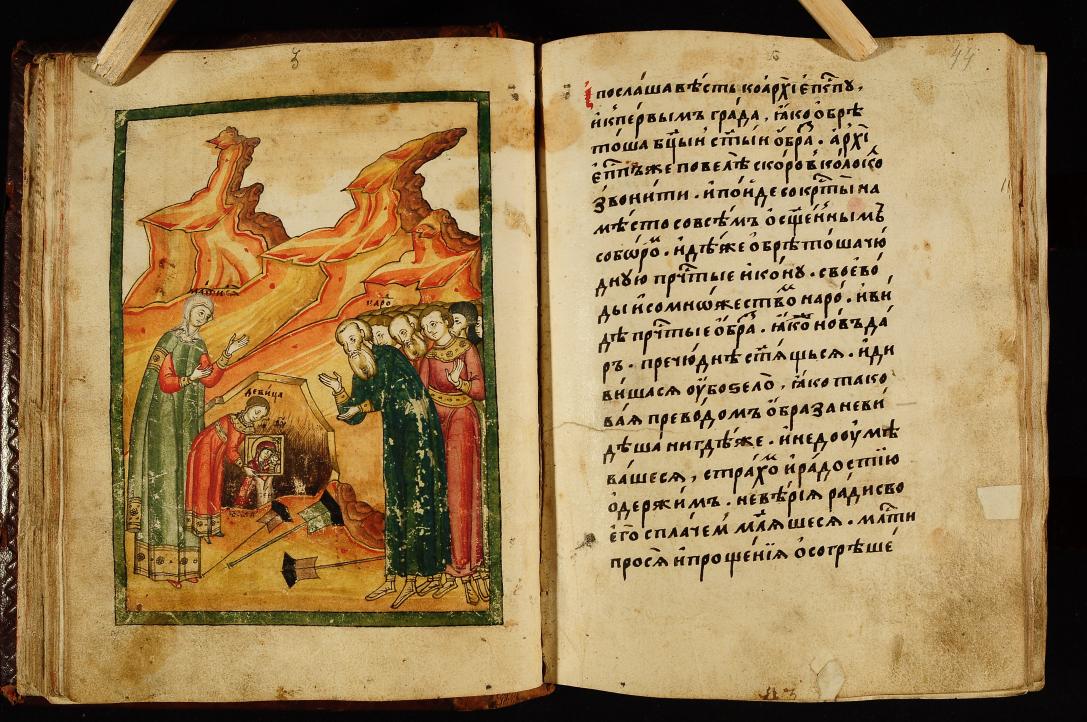 девица
44
І послаша вѣсть ко арх҃іеп҃кпꙋ,
и к первымъ града, ꙗко обрѣ
тоша бц҃ы и ст҃ыи обра҃. арх҃і
еп҃пъ же повелѣ скоро в коло́ко
звонити. и пойде со крт҃ы на
мѣсто со всѣмъ ос҃щеннымъ
соборо҃. идѣже обрѣтоша чю
дную пречт҃ые иконꙋ. с воево
ды и со мнѡжество҃ наро҃. и ви
дѣ пречт҃ые обра҃. ꙗко новъ да
ръ. пречюднѣ ст҃ѧщьсѧ. и ди
вишасѧ оубо ѕело҃, ꙗко тако
ваѧ преводомъ образа не ви
дѣша нигдѣже. и недооумѣ
вашесѧ, страхо҃ и радостию
одержимъ. невѣріѧ ради сво
его с плачем мл҃ѧшесѧ. мл҃ти
просѧ и прощеніѧ о согрѣше